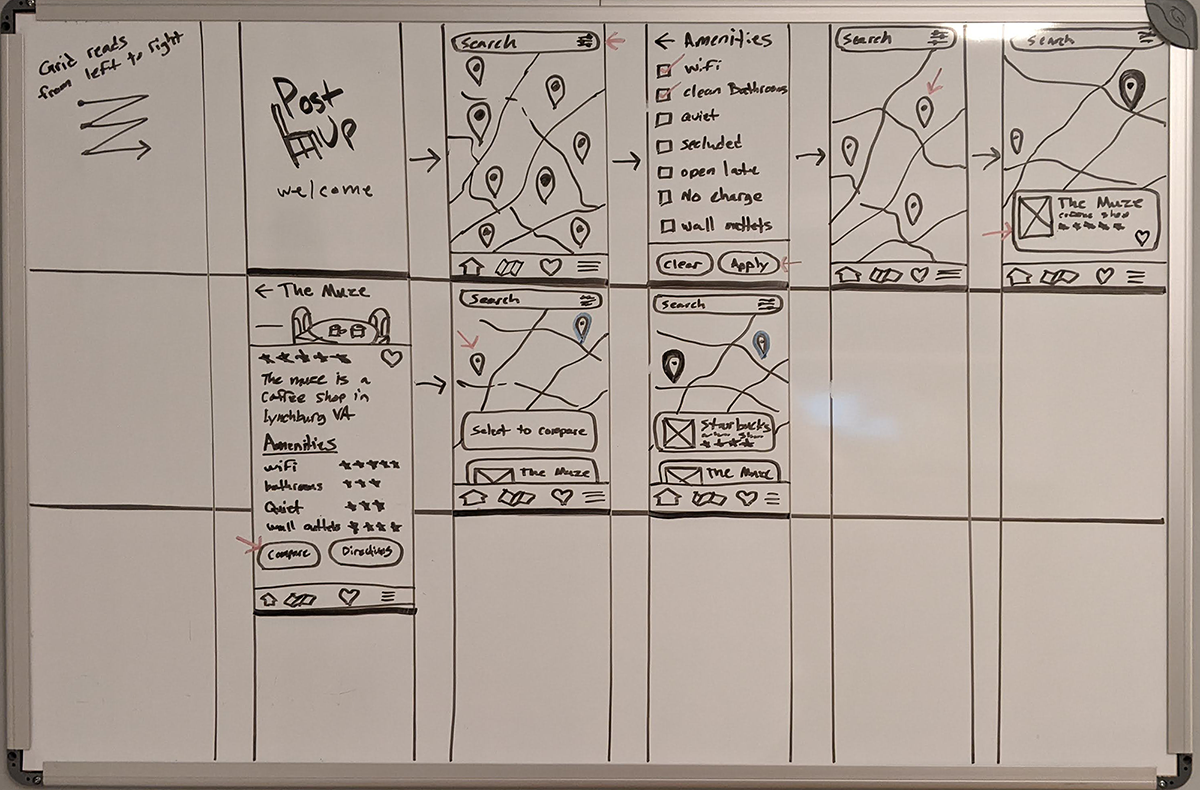 Grid reads
from left to right
Post
Up
welcome
Search
← Amenities
wifi
clean Bathrooms
quiet
secluded
open late
No charge
wall outlets
Clear
Apply
Search
Search
The Muze
shop
← The Muze
The muze is a
Coffee shop in
Lynchburg VA
Amenities
wifi
bathrooms
Quiet
wall outlets
Compare
Directions
Search
Select to compare
The Muze
Search
Starbucks
The Muze